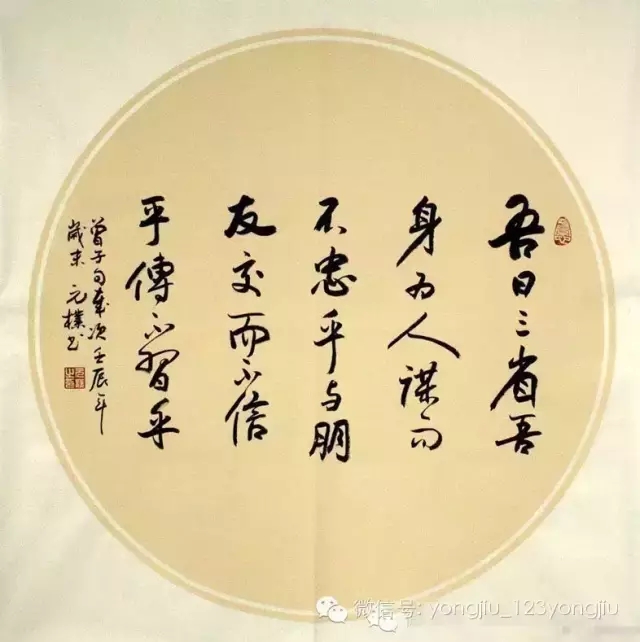 吾日三省吾
身为人谋而
不忠乎与朋
友交而不信
乎傳不習乎
曾子句歲次壬辰年
歲末 元樸书
微信号: yongjiu_123yongjiu